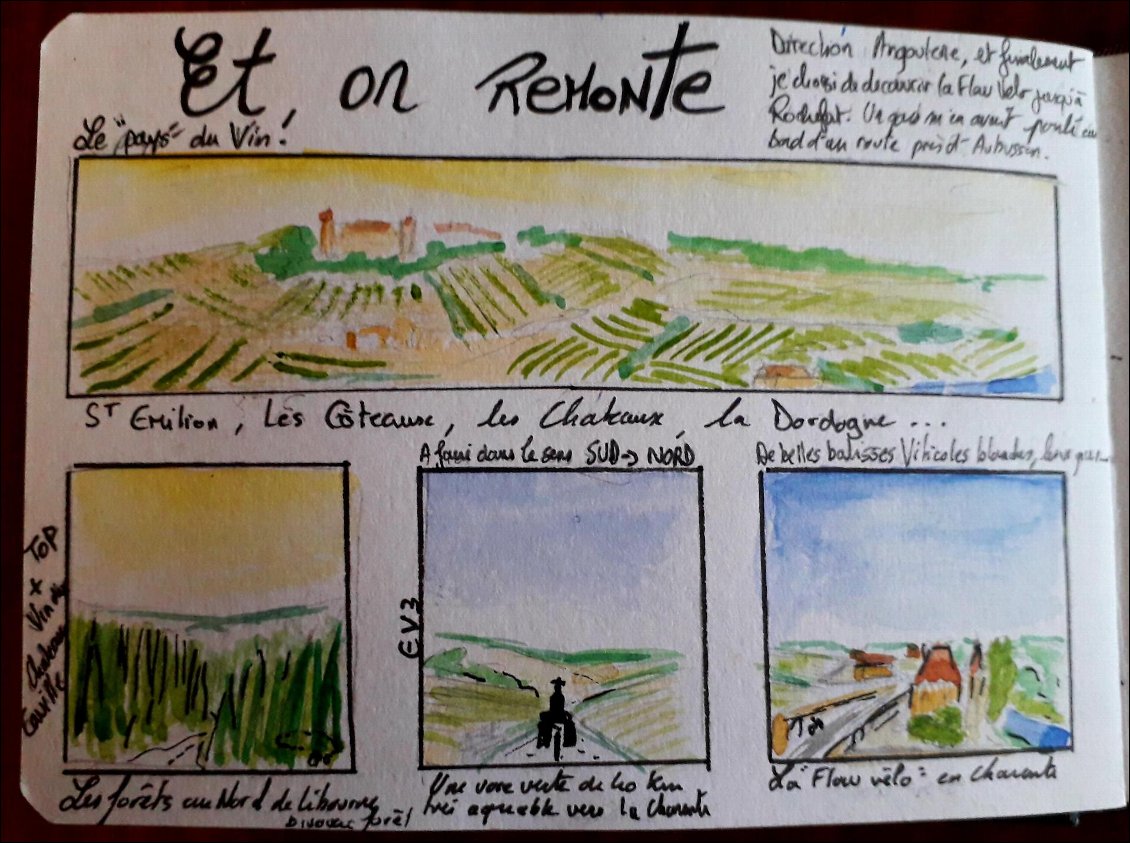 Et, on REMONTE
Direction Angouleme, et finalement
je choisi de decouvrir la Flow Velo jusqu'à
Rochefort. Un gars m'en avait parlé en
bord d'un route près d'Aubusson.
Le "pays" du Vin!
ST Emilion, Les Côteaux, les Châteaux, la Dordogne...
A faire dans le sens SUD → NORD
De belles batisses Viticoles blondes, leurs
TOP
Vin du
Chateau
EV3
Les forêts au Nord de Libourne
bivouac forêt
Une voie verte de 40 Km
très agréable vers la Charente
La "Flow vélo" en Charente